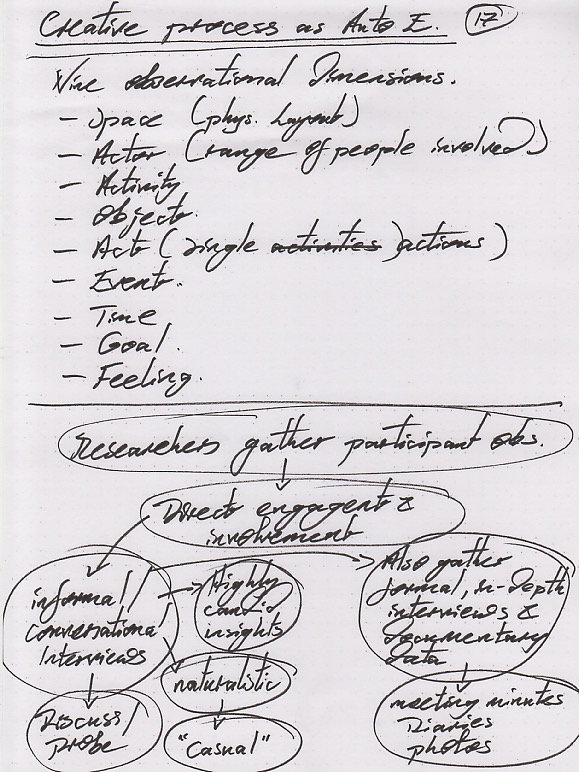 Creative process as Auto E. 17
Nine observational Dimensions.
- Space (phys. Layout)
- Actor (range of people involved)
- Activity
- Object.
- Act (single activities) actions)
- Event.
- Time
- Goal.
- Feeling.
Researchers gather participant obs.
Direct engagent &
involvement
informal/
conversational
Interviews
Highly
candid
insights
Also gather
formal, in-depth
interviews &
documentary
data
naturalistic
Discuss/
probe
"Casual"
meeting minutes
Diaries
photos